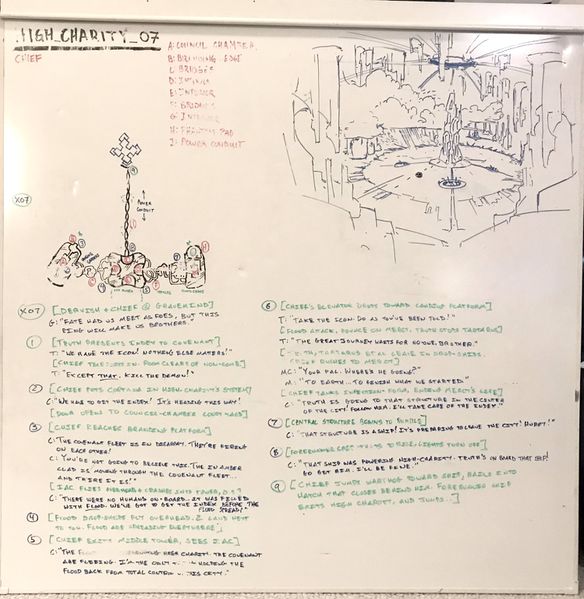 HIGH_CHARITY_07
CHIEF
A: COUNCIL CHAMBER
B: BRIDGING EDGE
C: BRIDGES
E: INTERIOR
F: BRIDGES
G: INTERIOR
H: PAD
J: POWER CONDUIT
POWER
CONDUIT
X07
X07 [DERVISH + CHIEF @ GRAVEMIND]
G: "FATE HAD US MEET AS FOES, BUT THIS
RING WILL MAKE US BROTHERS."
1 [TRUTH PRESENTS INDEX TO COVENANT]
T: "WE HAVE THE ICON! NOTHING ELSE MATTERS!"
[CHIEF TELEPORTS IN. ROOM CLEARS OF NON-COMB.]
T: "EXCEPT THAT. KILL THE DEMON!"
2 [CHIEF PUTS CORTANA IN HIGH CHARITY'S SYSTEM]
C: "WE HAVE TO GET THE INDEX! IT'S HEADING THIS WAY!
[DOOR OPENS TO COUNCIL-CHAMBER COURTYARD]
3 [CHIEF REACHES BRANDING PLATFORM]
C: THE COVENANT FLEET IS IN DISARRAY. THEY'RE FIRING
ON EACH OTHER!
C: YOU'RE NOT GOING TO BELIEVE THIS. THE IN AMBER
CLAD IS MOVING THROUGH THE COVENANT FLEET...
AND THERE IT IS!"
[IAC FLIES OVERHEAD CRASHES INTO TOWER,
C: "THERE WERE NO HUMANS ON-BOARD. IT WAS FILLED
WITH FLOOD. WE'VE GOT TO GET THE INDEX BEFORE THE
FLOOD SPREAD!"
4 [FLOOD DROP-SHIPS FLY OVERHEAD. 2 LAND NEXT
TO YOU. FLOOD ARE SPREADING EVERYWHERE]
5 [CHIEF EXITS MIDDLE TOWER, SEES IAC]
C: "THE HIGH CHARITY. THE COVENANT
ARE FLEEING. I'M THE ONLY HOLDING THE
FLOOD BACK FROM TOTAL CONTROL THIS CITY."
6 [CHIEF'S ELEVATOR DROPS TOWARD LANDING PLATFORM]
T: "TAKE THE ICON. DO AS YOU'VE BEEN TOLD!"
[FLOOD ATTACK, POUNCE ON MERCY. TRUTH STOPS TARTARUS]
T: "THE GREAT JOURNEY WAITS FOR NO ONE, BROTHER."
TARTARUS ET AL LEAVE IN DROP-SHIPS.
CHIEF RUSHES TO MERCY]
MC: "YOUR PAL. WHERE'S HE GOING?"
M: "TO EARTH... TO FINISH WHAT WE STARTED."
[CHIEF TAKES INFECTION FORM, ENDING MERCY'S LIFE]
C: "TRUTH IS GOING TO THAT STRUCTURE IN THE CENTER
OF THE CITY. FOLLOW HIM. I'LL TAKE CARE OF THE INDEX."
7 [CENTRAL STRUCTURE BEGINS TO RUMBLE]
C: "THAT STRUCTURE IS A SHIP! IT'S PREPARING TO LEAVE THE CITY! HURRY!"
8 [FORERUNNER SHIP STARTS TO RISE, LIGHTS TURN OFF]
C: "THAT SHIP WAS POWERING HIGH-CHARITY. TRUTH'S ON BOARD THAT SHIP!
GO GET HIM. I'LL BE FINE."
9 [CHIEF JUMPS WARTHOG TOWARD SHIP, SAILS INTO
HATCH THAT CLOSES BEHIND HIM. FORERUNNER SHIP
EXITS HIGH CHARITY, AND JUMPS...]